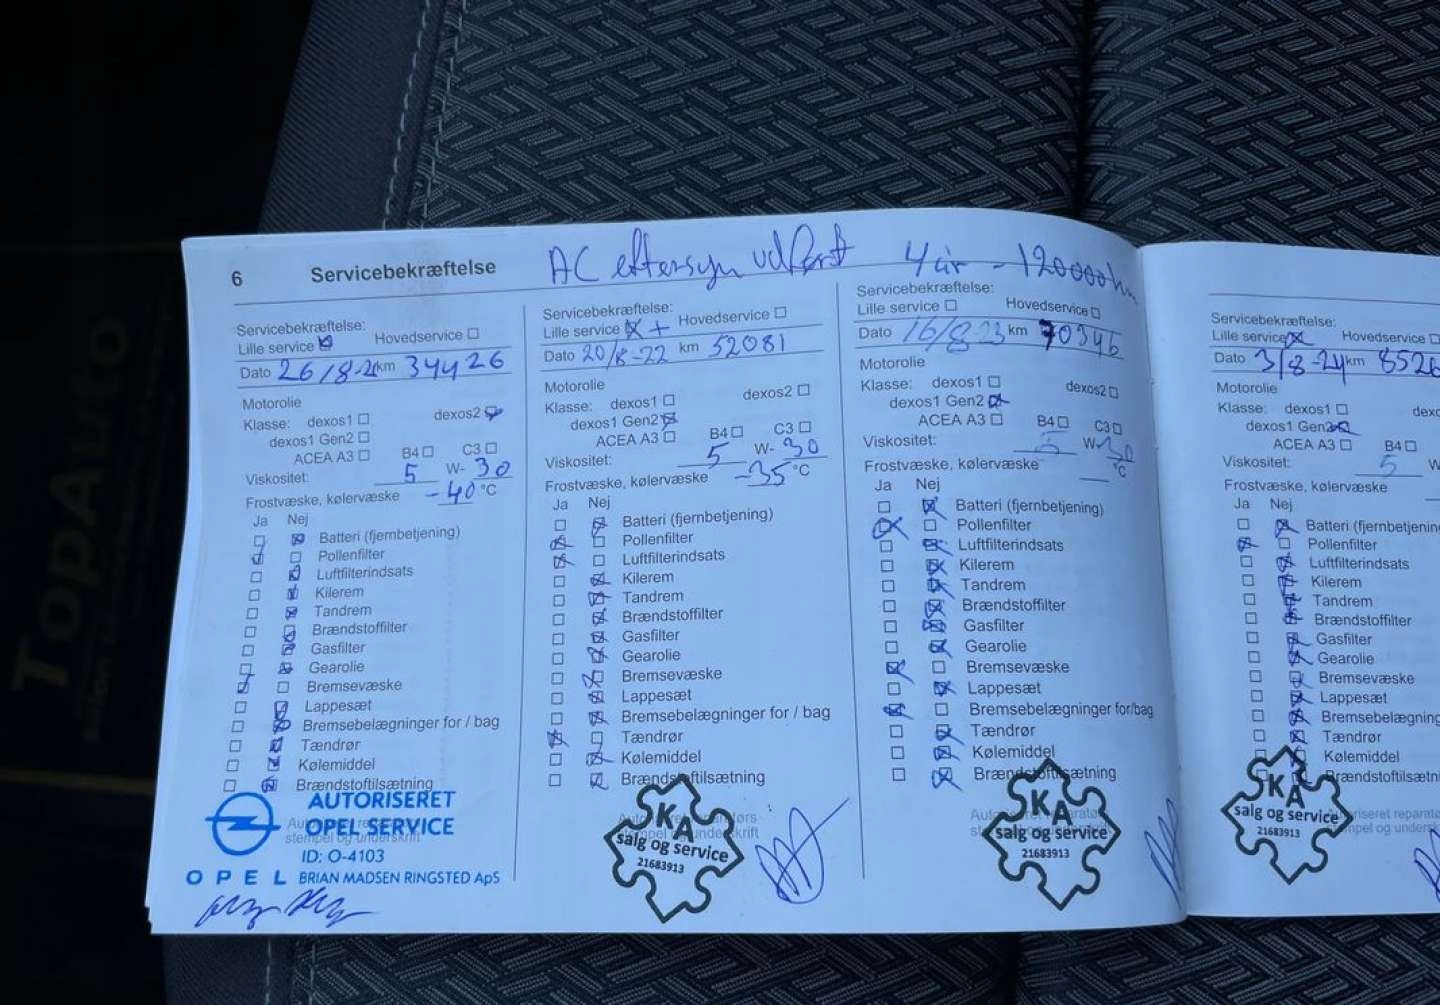 6 Servicebekræftelse AC eftersyn udført 4 år - 120000km
Servicebekræftelse:
Lille service Hovedservice
Dato 26/8-2 km 34426
Motorolie
Klasse: dexos1 dexos2
dexos1 Gen2
ACEA A3 B4 C3
Viskositet: 5 W- 30
Frostvæske, kølervæske -40 °C
Ja Nej
Batteri (fjernbetjening)
Pollenfilter
Luftfilterindsats
Kilerem
Tandrem
Brændstoffilter
Gasfilter
Gearolie
Bremsevæske
Lappesæt
Bremsebelægninger for / bag
Tændrør
Kølemiddel
Brændstoftilsætning
AUTORISERET
OPEL SERVICE
stempel og underskrift
ID: O-4103
OPEL BRIAN MADSEN RINGSTED ApS
Servicebekræftelse:
Lille service + Hovedservice
Dato 20/8-22 km 52081
Motorolie
Klasse: dexos1 dexos2
dexos1 Gen2
ACEA A3 B4 C3
Viskositet: 5 W- 30
Frostvæske, kølervæske -35 °C
Ja Nej
Batteri (fjernbetjening)
Pollenfilter
Luftfilterindsats
Kilerem
Tandrem
Brændstoffilter
Gasfilter
Gearolie
Bremsevæske
Lappesæt
Bremsebelægninger for / bag
Tændrør
Kølemiddel
Brændstoftilsætning
KA
salg og service
21683913
Servicebekræftelse:
Lille service Hovedservice
Dato 16/8-23 km 70346
Motorolie
Klasse: dexos1 dexos2
dexos1 Gen2
ACEA A3 B4 C3
Viskositet: 5 W- 30
Frostvæske, kølervæske °C
Ja Nej
Batteri (fjernbetjening)
Pollenfilter
Luftfilterindsats
Kilerem
Tandrem
Brændstoffilter
Gasfilter
Gearolie
Bremsevæske
Lappesæt
Bremsebelægninger for/bag
Tændrør
Kølemiddel
Brændstoftilsætning
KA
salg og service
21683913
Servicebekræftelse:
Lille service Hovedservice
Dato 3/8-24 km 8526
Motorolie
Klasse: dexos1 dexo
dexos1 Gen2
ACEA A3 B4
Viskositet: 5 W
Frostvæske, kølervæske
Ja Nej
Batteri (fjernbetjenin
Pollenfilter
Luftfilterindsats
Kilerem
Tandrem
Brændstoffilter
Gasfilter
Gearolie
Bremsevæske
Lappesæt
Bremsebelægning
Tændrør
Kølemiddel
Brændstoftilsætn
KA
salg og service
21683913
TopAuto